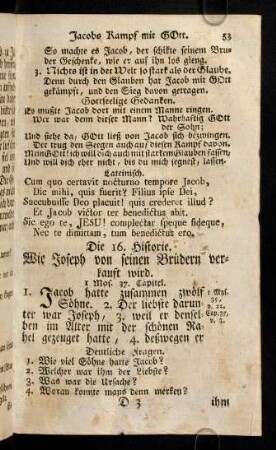 Jacobs Kampf mit GOtt. 53
So machte es Jacob, der schikte seinem Bru-
der Geschenke, wie er auf ihn los gieng.
3. Nichts ist in der Welt so stark als der Glaube.
Denn durch den Glauben hat Jacob mit GOtt
gekämpft, und den Sieg davon getragen.
Gottseelige Gedanken.
Es mußte Jacob dort mit einem Manne ringen.
Wer war denn dieser Mann? Wahrhaftig GOtt
der Sohn;
Und siehe da, GOtt ließ von Jacob sich bezwingen.
Der trug den Seegen auch aus diesen Kampf davon.
Mein GOtt! ich will dich auch mit starkem Glauben fassen,
Ich will dich eher nicht, bis du mich segnest, lassen.
Lateinisch.
Cum quo certavit nocturno tempore Jacob,
Dic mihi, quis fuerit? Filius ipse Dei,
Succubuisse Deo placuit! quis crederet illud?
Et Jacob victor ter benedictus abit.
Sic ego te, JESU! complectar speque fideque,
Nec te dimittam, tum benedictus ero.
Die 16. Historie.
Wie Joseph von seinen Brüdern ver-
kauft wird.
1 Mos. 37. Capitel.
1. Jacob hatte zusammen zwölf 1 Mos.
Söhne. 2. Der liebste darun- 35,
ter war Joseph, 3. weil er densel- Cap. 37,
ben im Alter mit der schönen Ra- v. 3.
hel gezeuget hatte, 4. deßwegen er
Deutliche Fragen.
1. Wie viel Söhne hatte Jacob?
2. Welcher war ihm der Liebste?
3. Was war die Ursache?
4. Woran konnte mans denn merken?
D 3 ihm